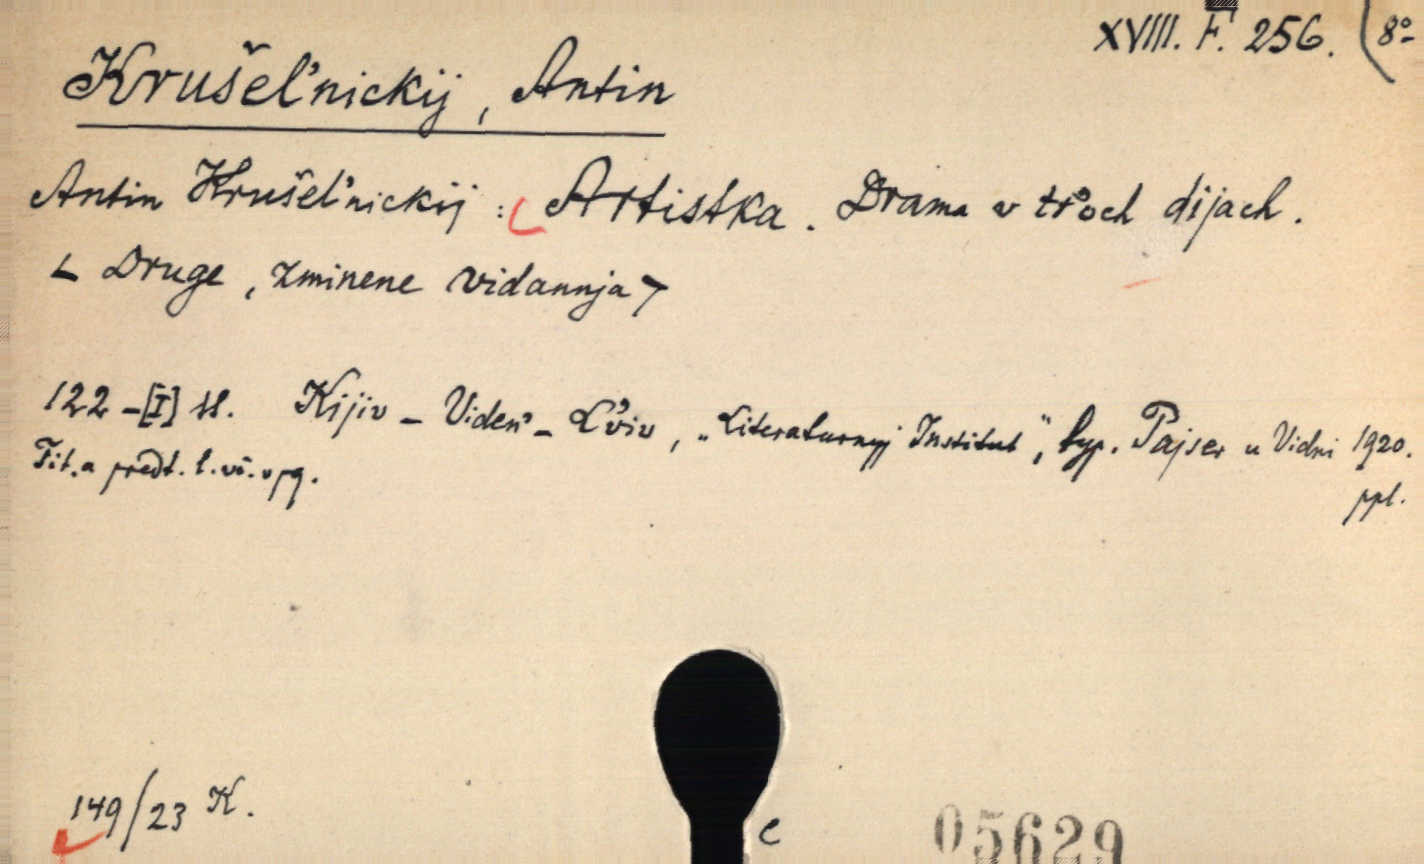 XVIII. F. 256. (8°-
Krušel'nickij, Antin
Antin Krušel'nickij : Artistka. Drama v tr'och dijach.
< Druge, zminene vidannja >
122 - [I] st. Kijiv - Viden' - L'viv, „Literaturnyj Institut“, typ. Pajser u Vidni 1920.
Tit. a předt. l. vš. v pg.
ppl.
149/23 K.
e
05629